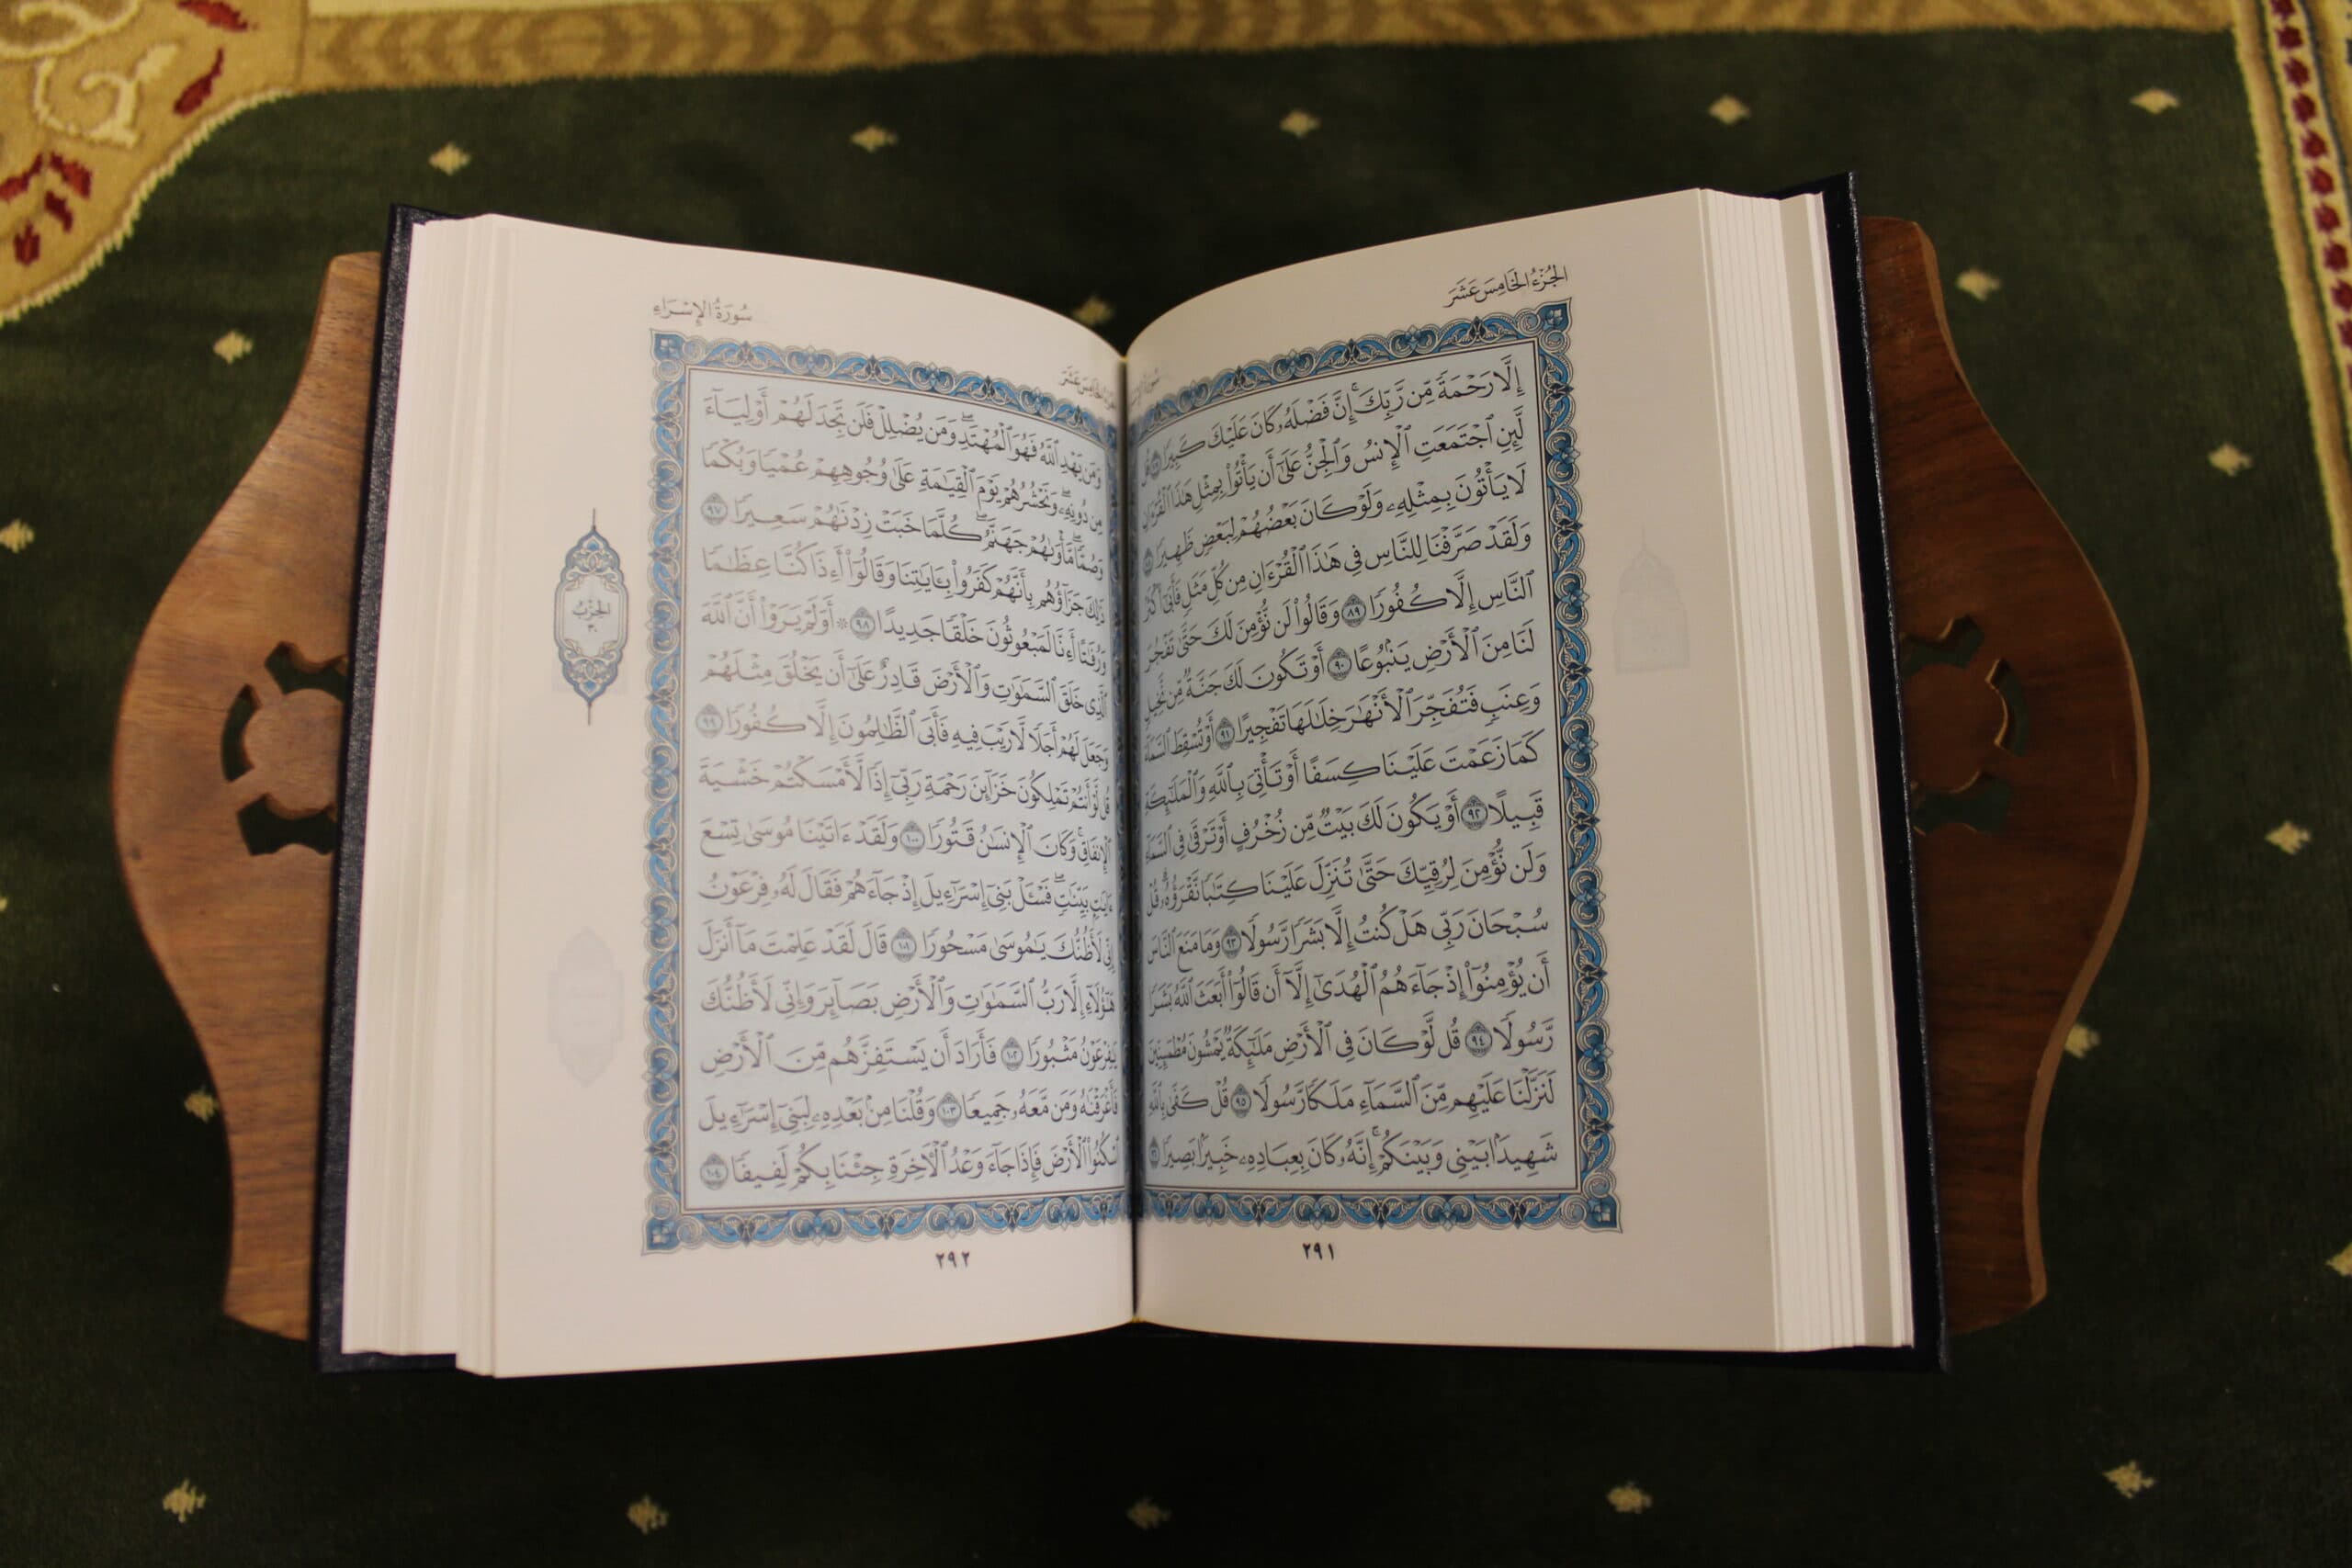 الجُزْءُ الخَامِسَ عَشَرَ
إِلَّا رَحْمَةً مِّن رَّبِّكَ ۚ إِنَّ فَضْلَهُۥ كَانَ عَلَيْكَ كَبِيرًا ٨٧ قُل
لَّئِنِ ٱجْتَمَعَتِ ٱلْإِنسُ وَٱلْجِنُّ عَلَىٰٓ أَن يَأْتُوا۟ بِمِثْلِ هَٰذَا ٱلْقُرْءَانِ
لَا يَأْتُونَ بِمِثْلِهِۦ وَلَوْ كَانَ بَعْضُهُمْ لِبَعْضٍ ظَهِيرًا ٨٨
وَلَقَدْ صَرَّفْنَا لِلنَّاسِ فِى هَٰذَا ٱلْقُرْءَانِ مِن كُلِّ مَثَلٍ فَأَبَىٰٓ أَكْثَرُ
ٱلنَّاسِ إِلَّا كُفُورًا ٨٩ وَقَالُوا۟ لَن نُّؤْمِنَ لَكَ حَتَّىٰ تَفْجُرَ
لَنَا مِنَ ٱلْأَرْضِ يَنۢبُوعًا ٩٠ أَوْ تَكُونَ لَكَ جَنَّةٌ مِّن نَّخِيلٍ
وَعِنَبٍ فَتُفَجِّرَ ٱلْأَنْهَٰرَ خِلَٰلَهَا تَفْجِيرًا ٩١ أَوْ تُسْقِطَ ٱلسَّمَآءَ
كَمَا زَعَمْتَ عَلَيْنَا كِسَفًا أَوْ تَأْتِىَ بِٱللَّهِ وَٱلْمَلَٰٓئِكَةِ
قَبِيلًا ٩٢ أَوْ يَكُونَ لَكَ بَيْتٌ مِّن زُخْرُفٍ أَوْ تَرْقَىٰ فِى ٱلسَّمَآءِ
وَلَن نُّؤْمِنَ لِرُقِيِّكَ حَتَّىٰ تُنَزِّلَ عَلَيْنَا كِتَٰبًا نَّقْرَؤُهُۥ ۗ قُلْ
سُبْحَانَ رَبِّى هَلْ كُنتُ إِلَّا بَشَرًا رَّسُولًا ٩٣ وَمَا مَنَعَ ٱلنَّاسَ
أَن يُؤْمِنُوٓا۟ إِذْ جَآءَهُمُ ٱلْهُدَىٰٓ إِلَّآ أَن قَالُوٓا۟ أَبَعَثَ ٱللَّهُ بَشَرًا
رَّسُولًا ٩٤ قُل لَّوْ كَانَ فِى ٱلْأَرْضِ مَلَٰٓئِكَةٌ يَمْشُونَ مُطْمَئِنِّينَ
لَنَزَّلْنَا عَلَيْهِم مِّنَ ٱلسَّمَآءِ مَلَكًا رَّسُولًا ٩٥ قُلْ كَفَىٰ بِٱللَّهِ
شَهِيدًۢا بَيْنِى وَبَيْنَكُمْ ۚ إِنَّهُۥ كَانَ بِعِبَادِهِۦ خَبِيرًۢا بَصِيرًا ٩٦
٢٩١
سُورَةُ الإِسْرَاءِ
وَمَن يَهْدِ ٱللَّهُ فَهُوَ ٱلْمُهْتَدِ ۖ وَمَن يُضْلِلْ فَلَن تَجِدَ لَهُمْ أَوْلِيَآءَ
مِن دُونِهِۦ ۖ وَنَحْشُرُهُمْ يَوْمَ ٱلْقِيَٰمَةِ عَلَىٰ وُجُوهِهِمْ عُمْيًا وَبُكْمًا
وَصُمًّا ۖ مَّأْوَىٰهُمْ جَهَنَّمُ ۖ كُلَّمَا خَبَتْ زِدْنَٰهُمْ سَعِيرًا ٩٧
ذَٰلِكَ جَزَآؤُهُم بِأَنَّهُمْ كَفَرُوا۟ بِـَٔايَٰتِنَا وَقَالُوٓا۟ أَءِذَا كُنَّا عِظَٰمًا
وَرُفَٰتًا أَءِنَّا لَمَبْعُوثُونَ خَلْقًا جَدِيدًا ٩٨ ۞ أَوَلَمْ يَرَوْا۟ أَنَّ ٱللَّهَ
ٱلَّذِى خَلَقَ ٱلسَّمَٰوَٰتِ وَٱلْأَرْضَ قَادِرٌ عَلَىٰٓ أَن يَخْلُقَ مِثْلَهُمْ
وَجَعَلَ لَهُمْ أَجَلًا لَّا رَيْبَ فِيهِ فَأَبَى ٱلظَّٰلِمُونَ إِلَّا كُفُورًا ٩٩
قُل لَّوْ أَنتُمْ تَمْلِكُونَ خَزَآئِنَ رَحْمَةِ رَبِّىٓ إِذًا لَّأَمْسَكْتُمْ خَشْيَةَ
ٱلْإِنفَاقِ ۚ وَكَانَ ٱلْإِنسَٰنُ قَتُورًا ١٠٠ وَلَقَدْ ءَاتَيْنَا مُوسَىٰ تِسْعَ
ءَايَٰتٍۭ بَيِّنَٰتٍ ۖ فَسْـَٔلْ بَنِىٓ إِسْرَٰٓءِيلَ إِذْ جَآءَهُمْ فَقَالَ لَهُۥ فِرْعَوْنُ
إِنِّى لَأَظُنُّكَ يَٰمُوسَىٰ مَسْحُورًا ١٠١ قَالَ لَقَدْ عَلِمْتَ مَآ أَنزَلَ
هَٰٓؤُلَآءِ إِلَّا رَبُّ ٱلسَّمَٰوَٰتِ وَٱلْأَرْضِ بَصَآئِرَ وَإِنِّى لَأَظُنُّكَ
يَٰفِرْعَوْنُ مَثْبُورًا ١٠٢ فَأَرَادَ أَن يَسْتَفِزَّهُم مِّنَ ٱلْأَرْضِ
فَأَغْرَقْنَٰهُ وَمَن مَّعَهُۥ جَمِيعًا ١٠٣ وَقُلْنَا مِنۢ بَعْدِهِۦ لِبَنِىٓ إِسْرَٰٓءِيلَ
ٱسْكُنُوا۟ ٱلْأَرْضَ فَإِذَا جَآءَ وَعْدُ ٱلْءَاخِرَةِ جِئْنَا بِكُمْ لَفِيفًا ١٠٤
الحِزْبُ
٣٠
٢٩٢